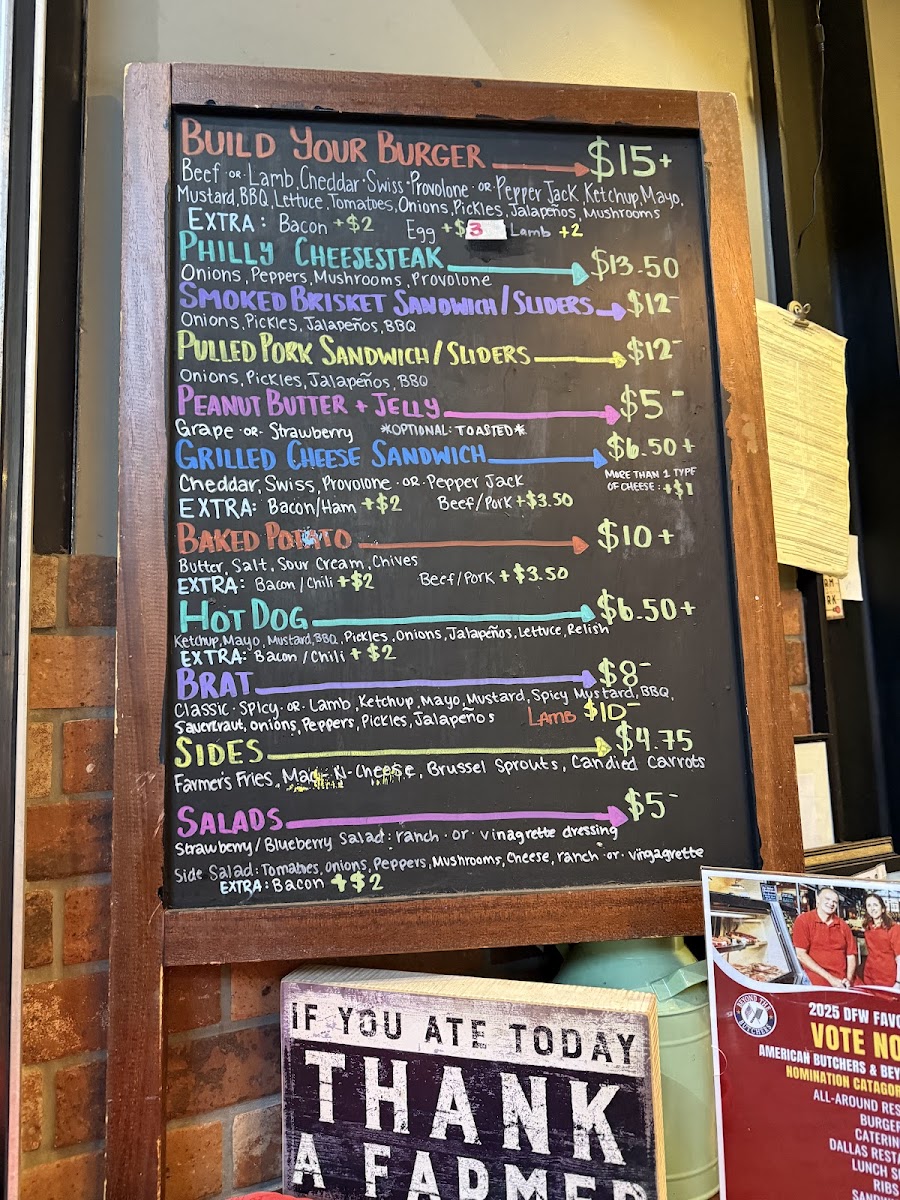 BUILD YOUR BURGER $15+
Beef OR Lamb, Cheddar · Swiss · Provolone · OR · Pepper Jack, Ketchup, Mayo,
Mustard, BBQ, Lettuce, Tomatoes, Onions, Pickles, Jalapeños, Mushrooms
EXTRA: Bacon +$2 Egg +$3 Lamb +2
PHILLY CHEESESTEAK $13.50
Onions, Peppers, Mushrooms, Provolone
SMOKED BRISKET SANDWICH/SLIDERS $12-
Onions, Pickles, Jalapeños, BBQ
PULLED PORK SANDWICH/SLIDERS $12-
Onions, Pickles, Jalapeños, BBQ
PEANUT BUTTER + JELLY $5-
Grape · OR · Strawberry *OPTIONAL: TOASTED*
GRILLED CHEESE SANDWICH $6.50+
Cheddar, Swiss, Provolone · OR · Pepper Jack
MORE THAN 1 TYPE
OF CHEESE: +$1
EXTRA: Bacon/Ham +$2 Beef/Pork +$3.50
BAKED POTATO $10+
Butter, Salt, Sour Cream, Chives
EXTRA: Bacon/Chili +$2 Beef/Pork +$3.50
HOT DOG $6.50+
Ketchup, Mayo, Mustard, BBQ, Pickles, Onions, Jalapeños, Lettuce, Relish
EXTRA: Bacon/Chili + $2
BRAT $8-
Classic · Spicy · OR · Lamb, Ketchup, Mayo, Mustard, Spicy Mustard, BBQ,
Sauerkraut, Onions, Peppers, Pickles, Jalapeños LAMB $10-
SIDES $4.75
Farmer's Fries, Mac-N-Cheese, Brussel Sprouts, Candied Carrots
SALADS $5-
Strawberry/Blueberry Salad: ranch · or · vinagrette dressing
Side Salad: Tomatoes, Onions, Peppers, Mushrooms, Cheese, ranch · or · vingagrette
EXTRA: Bacon +$2
IF YOU ATE TODAY
THANK
A FARMER
BEYOND THE BUTCHER
2025 DFW FAVO
VOTE NO
AMERICAN BUTCHERS & BEY
NOMINATION CATAGOR
ALL-AROUND RES
BURGER
CATERIN
DALLAS RESTA
LUNCH S
RIBS
SANDW